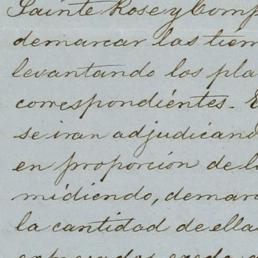 Sainte Rose y Comp
demarcar las tier
levantando los pla
correspondiéntes. E
se iran adjudicand
en proporcion de l
midiendo, demar
la cantidad de ella